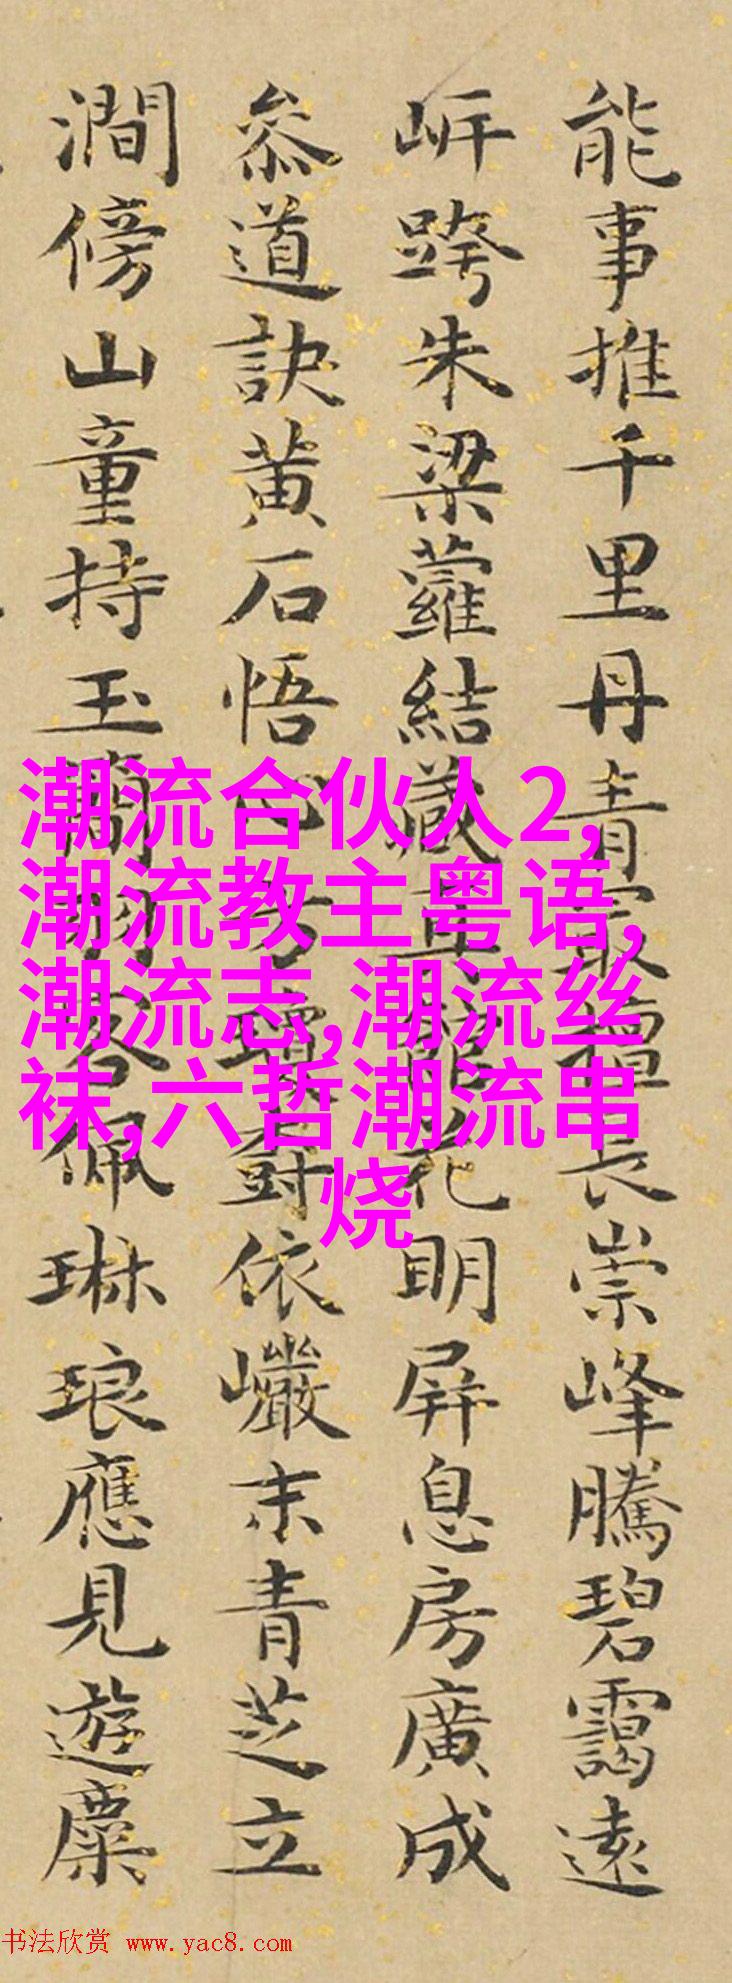 能事推千里丹青擅長崇峰騰碧靄遠
岍跨朱梁蘿結藏書館花明屏息房廣成
叅道訣黃石悟心依巖末青芝立
澗傍山童持玉簡羽客佩琳琅應見遊麋
潮流合伙人2,
潮流教主粤语,
潮流志,潮流丝
袜,六哲潮流串
烧
书法欣赏 www.yac8.com